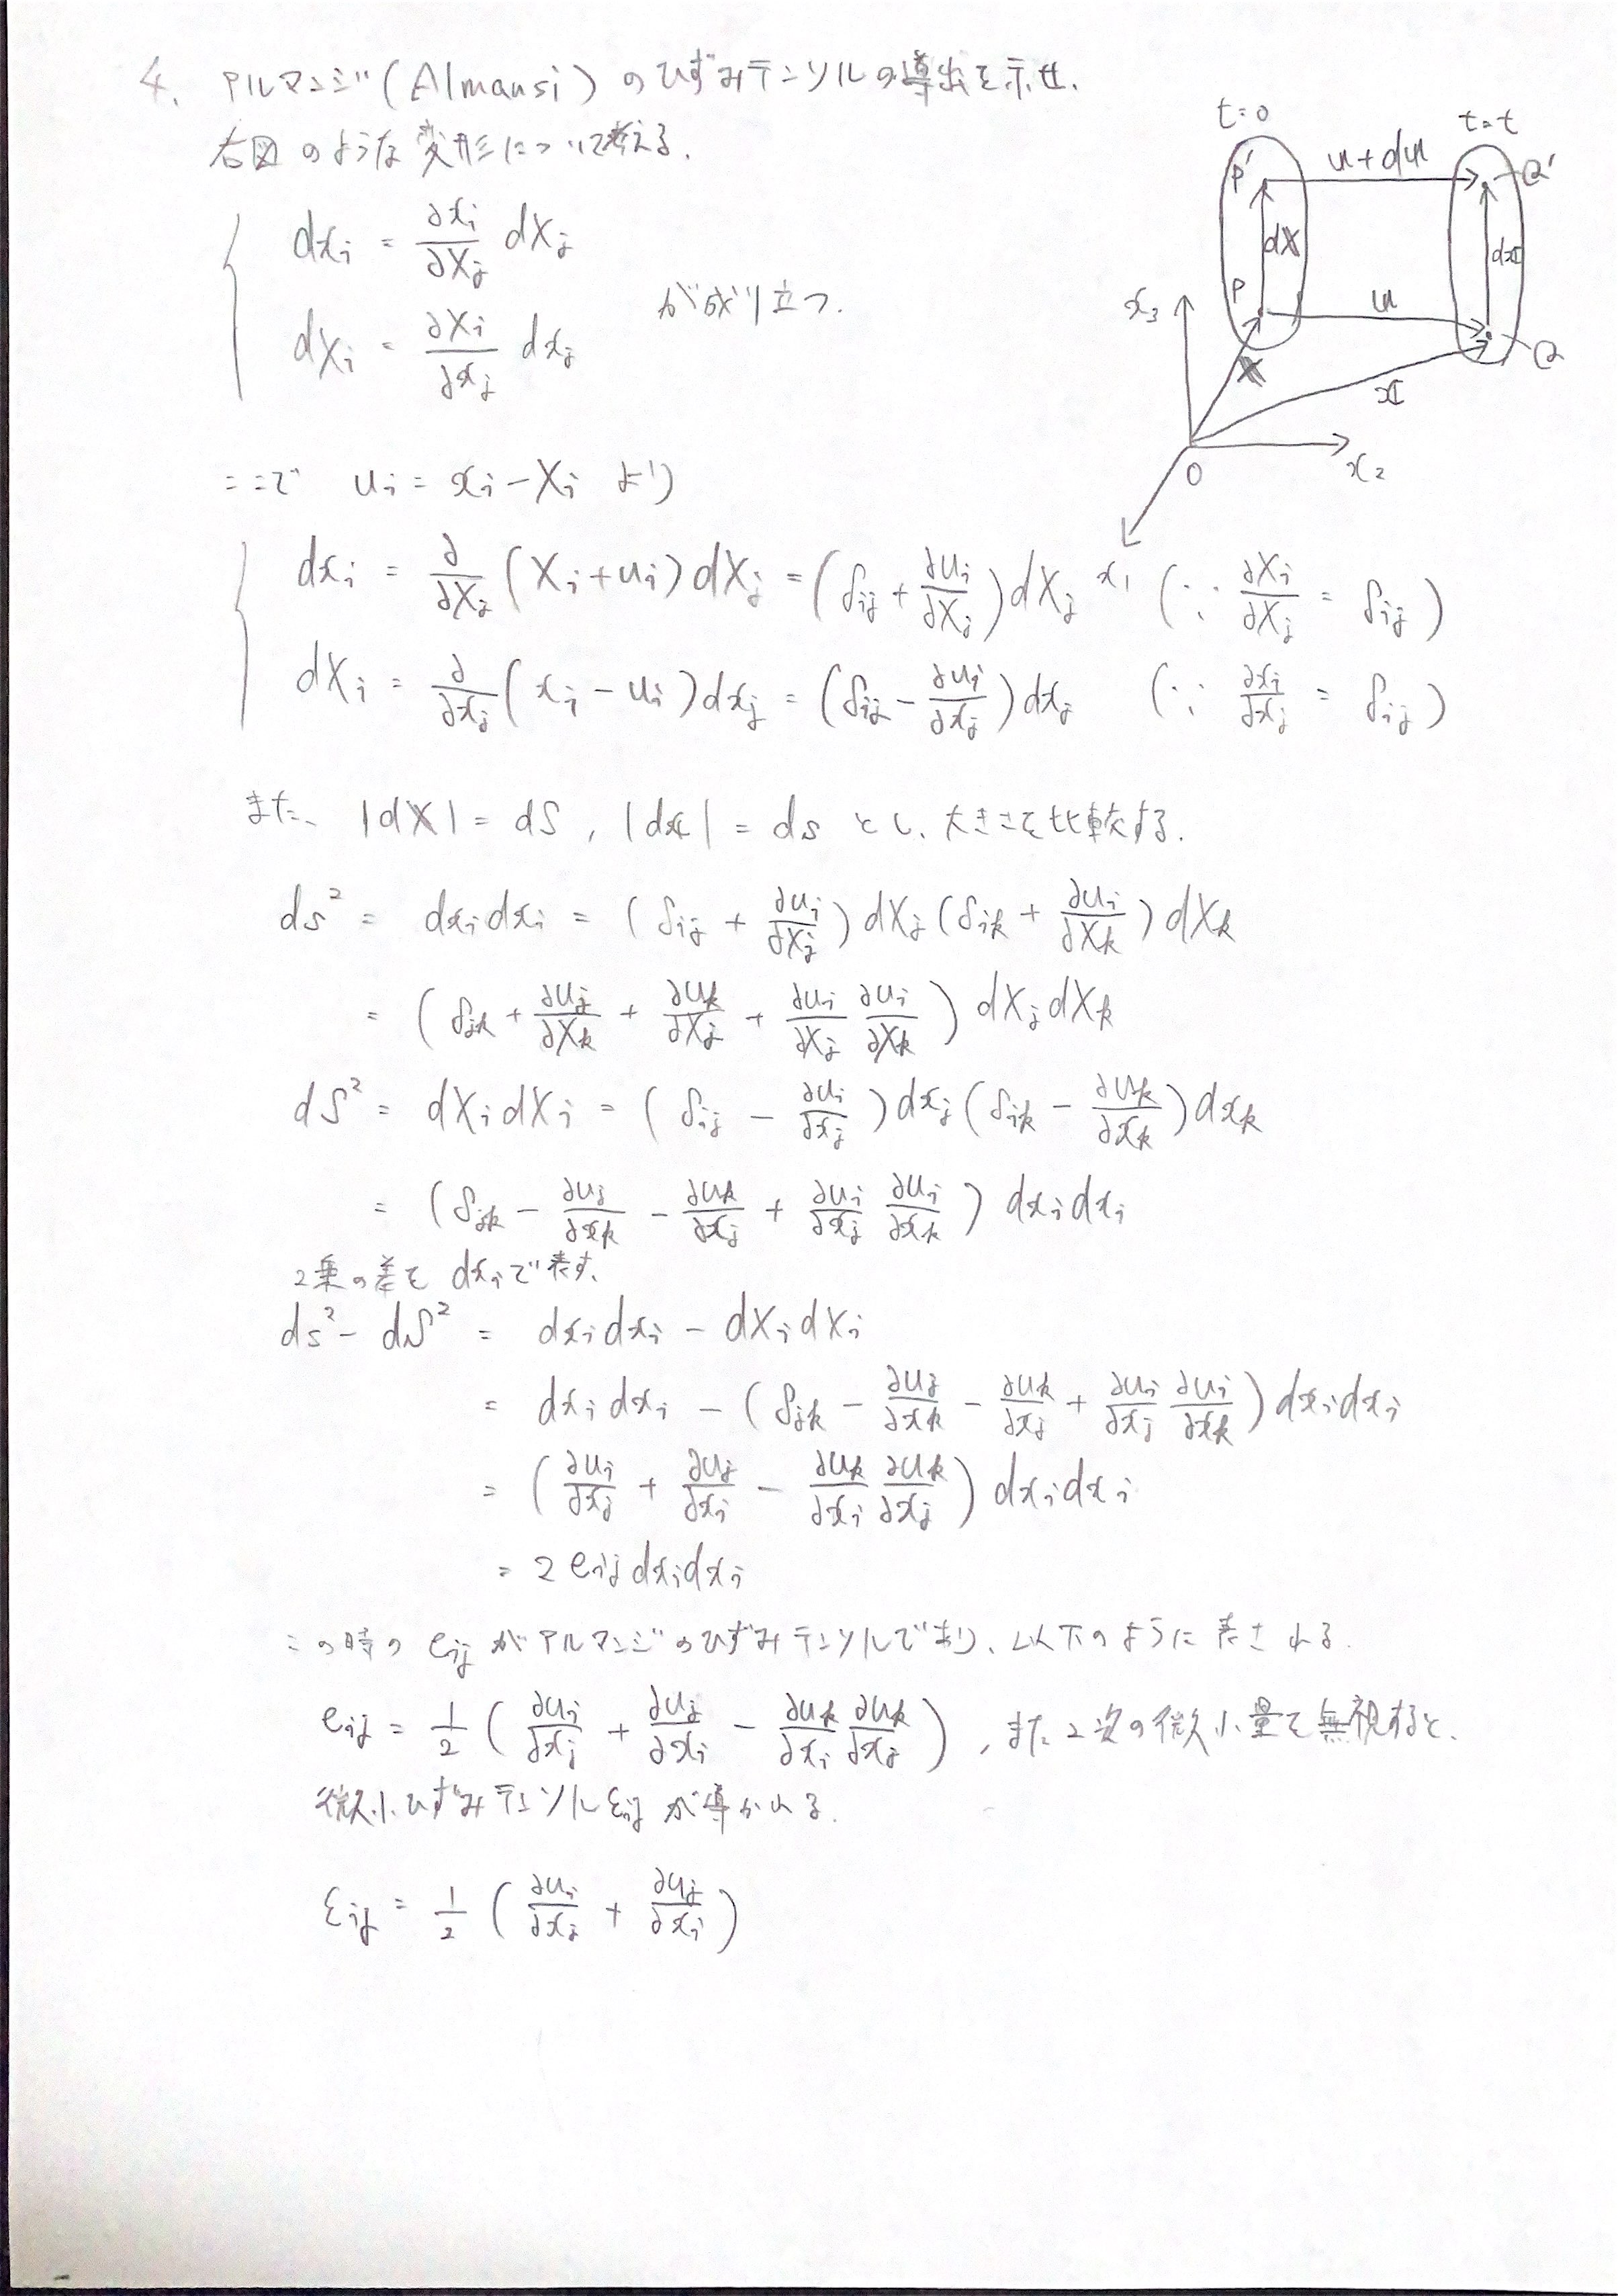 4. アルマンジ(Almansi)のひずみテンソルの導出を示せ.
右図のような変形について考える.
t=0
t=t
P'
u+du
Q'
dX
dx
P
u
Q
x₃
X
x
O
x₂
x₁
dxᵢ = ∂xᵢ/∂Xⱼ dXⱼ
dXᵢ = ∂Xᵢ/∂xⱼ dxⱼ
が成り立つ.
ここで uᵢ = xᵢ - Xᵢ より
dxᵢ = ∂/∂Xⱼ (Xᵢ + uᵢ) dXⱼ = (δᵢⱼ + ∂uᵢ/∂Xⱼ) dXⱼ (∵ ∂Xᵢ/∂Xⱼ = δᵢⱼ)
dXᵢ = ∂/∂xⱼ (xᵢ - uᵢ) dxⱼ = (δᵢⱼ - ∂uᵢ/∂xⱼ) dxⱼ (∵ ∂xᵢ/∂xⱼ = δᵢⱼ)
また、|dX| = dS, |dx| = ds とし、大きさを比較する.
ds² = dxᵢdxᵢ = (δᵢⱼ + ∂uᵢ/∂Xⱼ) dXⱼ (δᵢₖ + ∂uᵢ/∂Xₖ) dXₖ
= (δⱼₖ + ∂uⱼ/∂Xₖ + ∂uₖ/∂Xⱼ + ∂uᵢ/∂Xⱼ ∂uᵢ/∂Xₖ) dXⱼdXₖ
dS² = dXᵢdXᵢ = (δᵢⱼ - ∂uᵢ/∂xⱼ) dxⱼ (δᵢₖ - ∂uₖ/∂xₖ) dxₖ
= (δⱼₖ - ∂uⱼ/∂xₖ - ∂uₖ/∂xⱼ + ∂uᵢ/∂xⱼ ∂uᵢ/∂xₖ) dxᵢdxᵢ
2乗の差を dxᵢで表す.
ds² - dS² = dxᵢdxᵢ - dXᵢdXᵢ
= dxᵢdxᵢ - (δⱼₖ - ∂uⱼ/∂xₖ - ∂uₖ/∂xⱼ + ∂uᵢ/∂xⱼ ∂uᵢ/∂xₖ) dxᵢdxᵢ
= (∂uᵢ/∂xⱼ + ∂uⱼ/∂xᵢ - ∂uₖ/∂xᵢ ∂uₖ/∂xⱼ) dxᵢdxᵢ
= 2eᵢⱼdxᵢdxᵢ
この時の eᵢⱼ がアルマンジのひずみテンソルであり、以下のように表される.
eᵢⱼ = 1/2 (∂uᵢ/∂xⱼ + ∂uⱼ/∂xᵢ - ∂uₖ/∂xᵢ ∂uₖ/∂xⱼ), また2次の微小量を無視すると、
微小ひずみテンソルεᵢⱼが導かれる.
εᵢⱼ = 1/2 (∂uᵢ/∂xⱼ + ∂uⱼ/∂xᵢ)